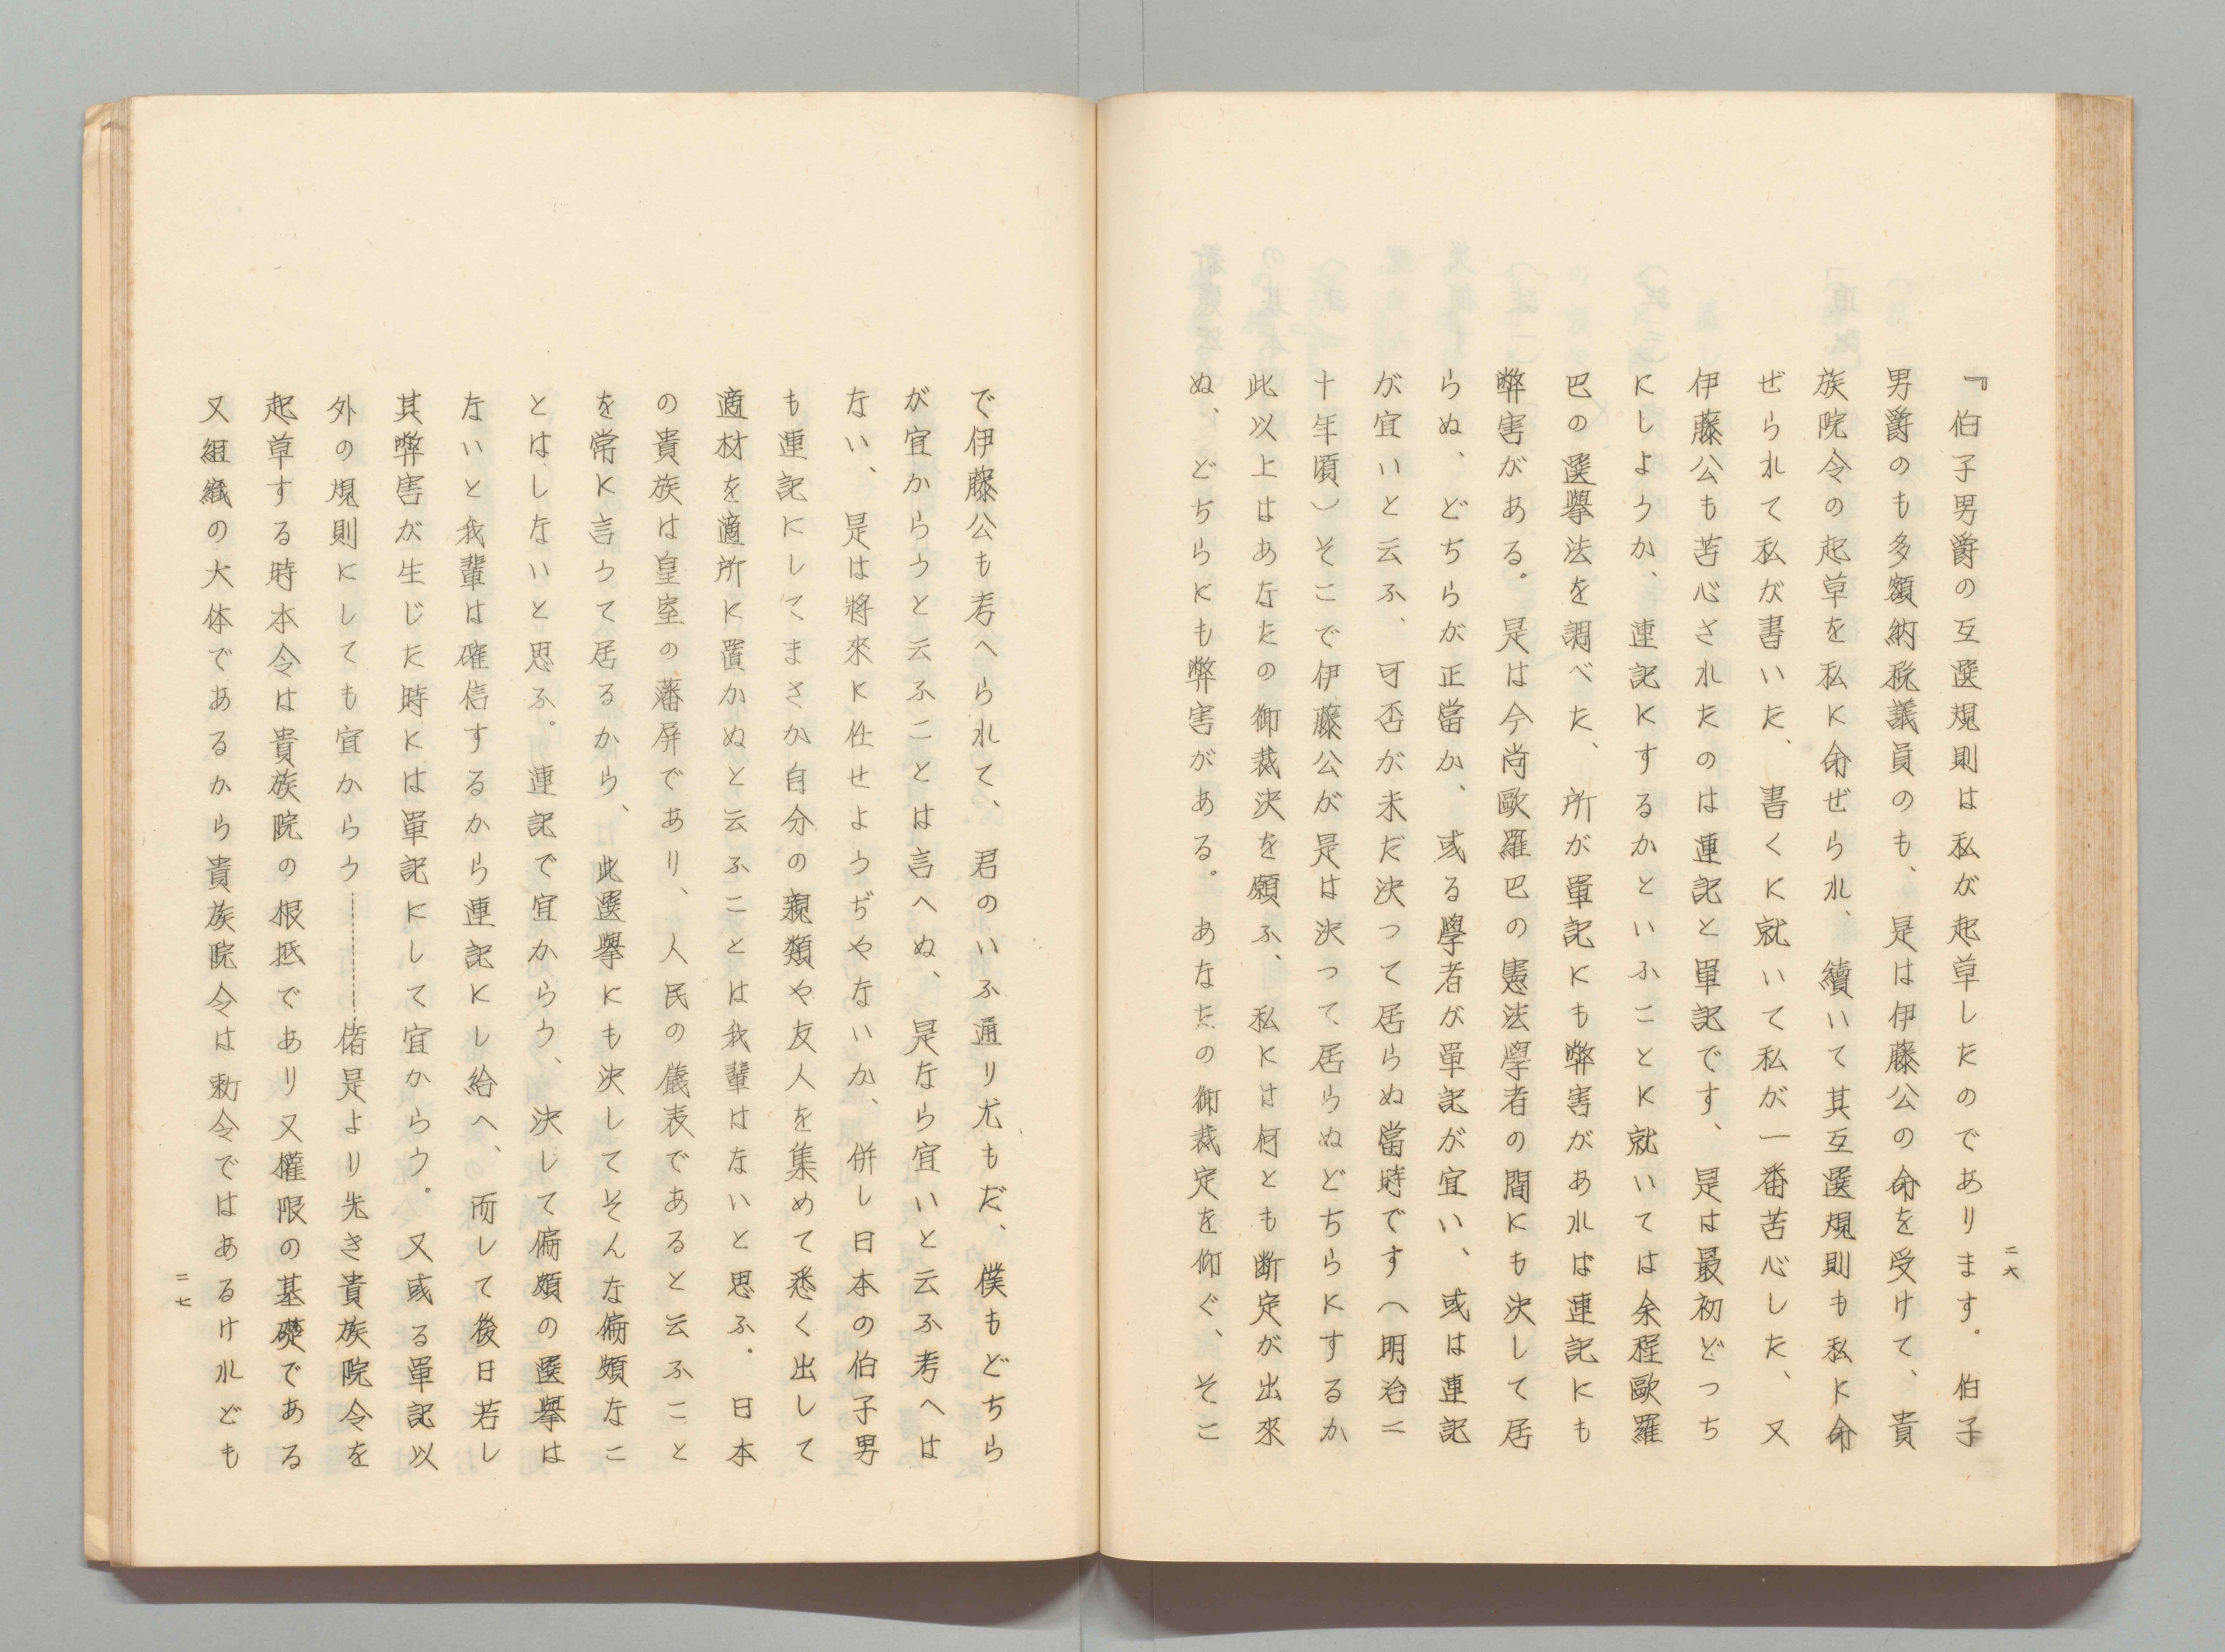 『伯子男爵の互選規則は私が起草したのであります。伯子
男爵のも多額納税議員のも、是は伊藤公の命を受けて、貴
族院令の起草を私に命ぜられ、續いて其互選規則も私に命
ぜられて私が書いた、書くに就いて私が一番苦心した、又
伊藤公も苦心されたのは連記と單記です、是は最初どっち
にしようか、連記にするかといふことに就いては余程歐羅
巴の選擧法を調べた、所が單記にも弊害があれは連記にも
弊害がある。是は今尚歐羅巴の憲法學者の間にも決して居
らぬ、どちらが正當か、或る學者が單記が宜い、或は連記
が宜いと云ふ、可否が未だ決って居らぬ當時です（明治二
十年頃）そこで伊藤公が是は決って居らぬどちらにするか
此以上はあなたの御裁決を願ふ、私には何とも断定が出來
ぬ、どちらにも弊害がある。あなたの御裁定を仰ぐ、そこ
二六
で伊藤公も考へられて、君のいふ通り尤もだ、僕もどちら
が宜からうと云ふことは言へぬ、是なら宜いと云ふ考へは
ない、是は將來に任せようぢやないか、併し日本の伯子男
も連記にしてまさか自分の親類や友人を集めて悉く出して
適材を適所に置かぬと云ふことは我輩はないと思ふ。日本
の貴族は皇室の藩屏であり、人民の儀表であると云ふこと
を常に言うて居るから、此選擧にも決してそんな偏頗なこ
とはしないと思ふ。連記で宜からう、決して偏頗の選擧は
ないと我輩は確信するから連記にし給へ、而して後日若し
其弊害が生じた時には單記にして宜からう。又或る單記以
外の規則にしても宜からう………偖是より先き貴族院令を
起草する時本令は貴族院の根抵であり又權限の基礎である
又組織の大体であるから貴族院令は勅令ではあるけれども
二七